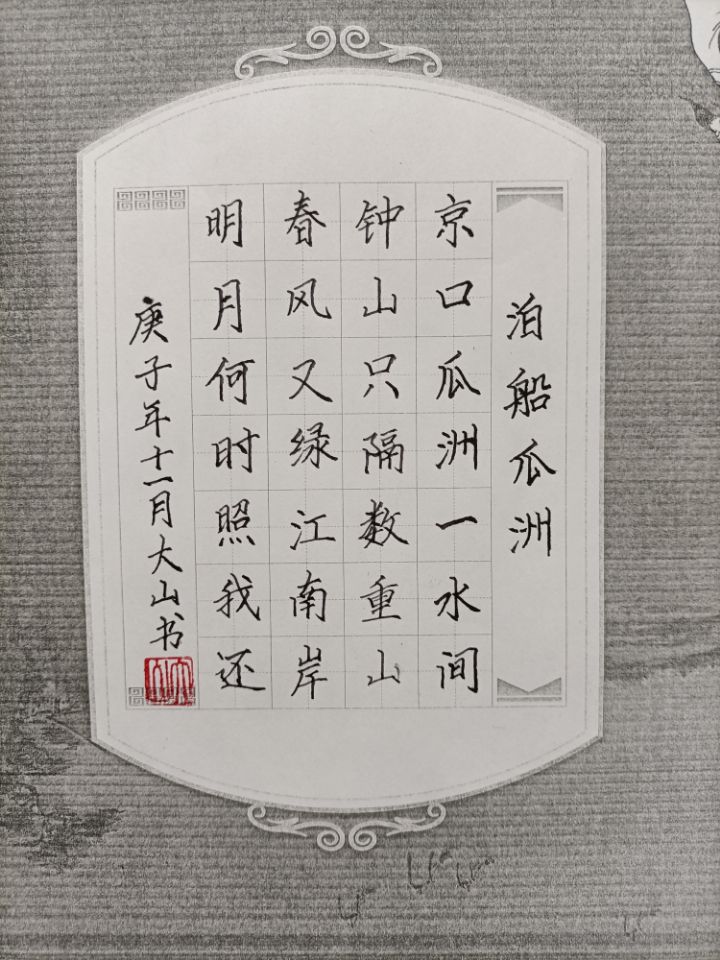 泊船瓜洲
京口瓜洲一水间
钟山只隔数重山
春风又绿江南岸
明月何时照我还
庚子年十一月大山书